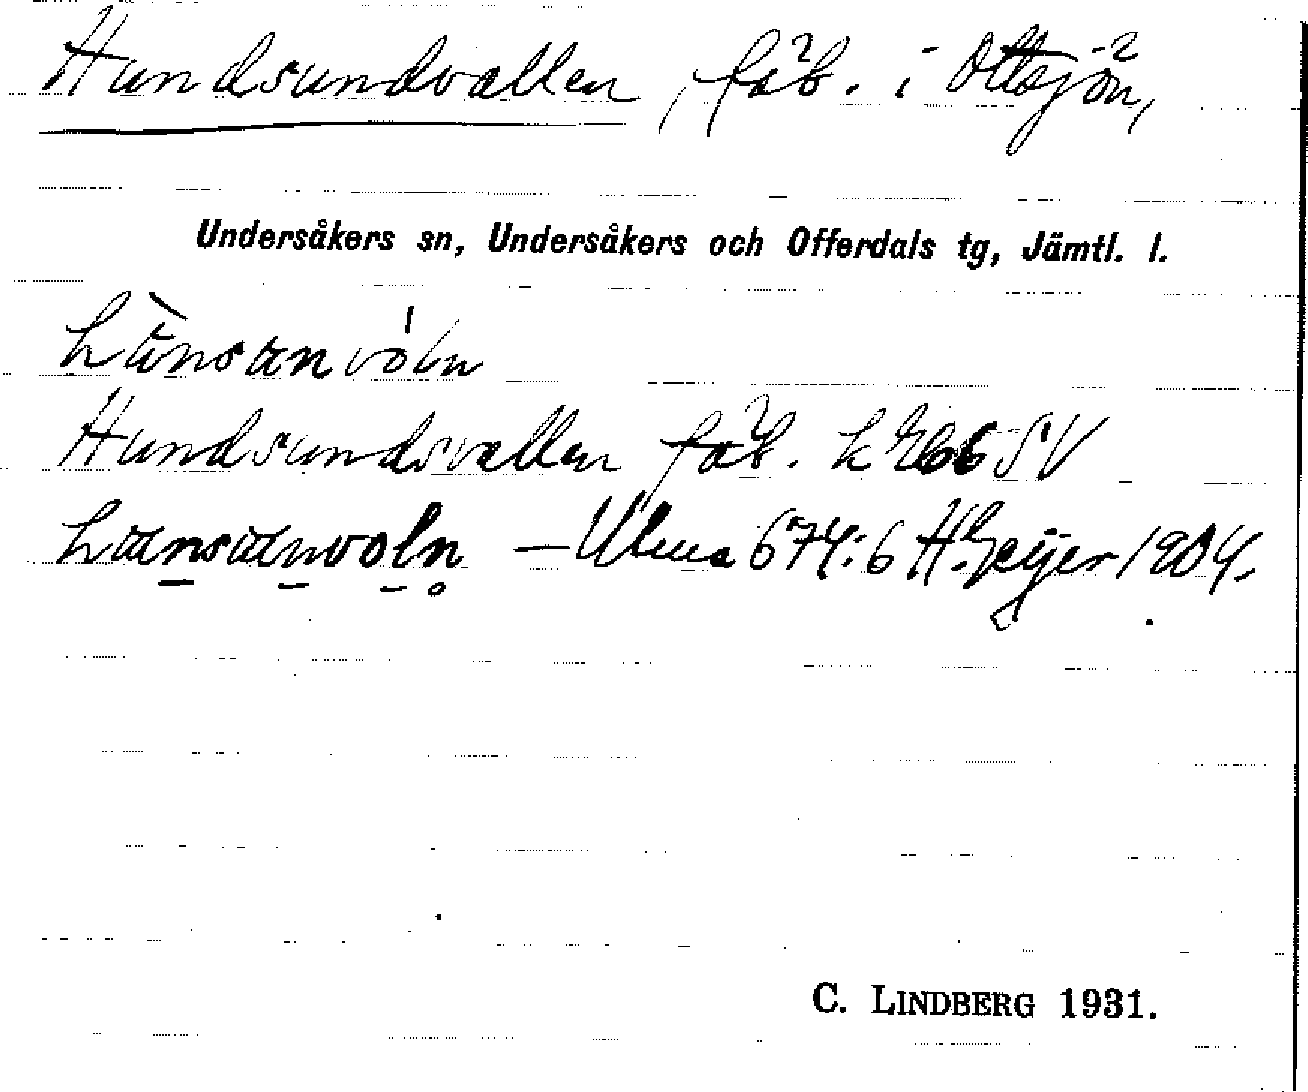 Hundsundvallen, fäb. i Ottsjön,
Undersåkers sn, Undersåkers och Offerdals tg, Jämtl. l.
Hundsundsvallen fäb. SV
— Ulma 674:6 H. Geijer 1904.
C. LINDBERG 1931.